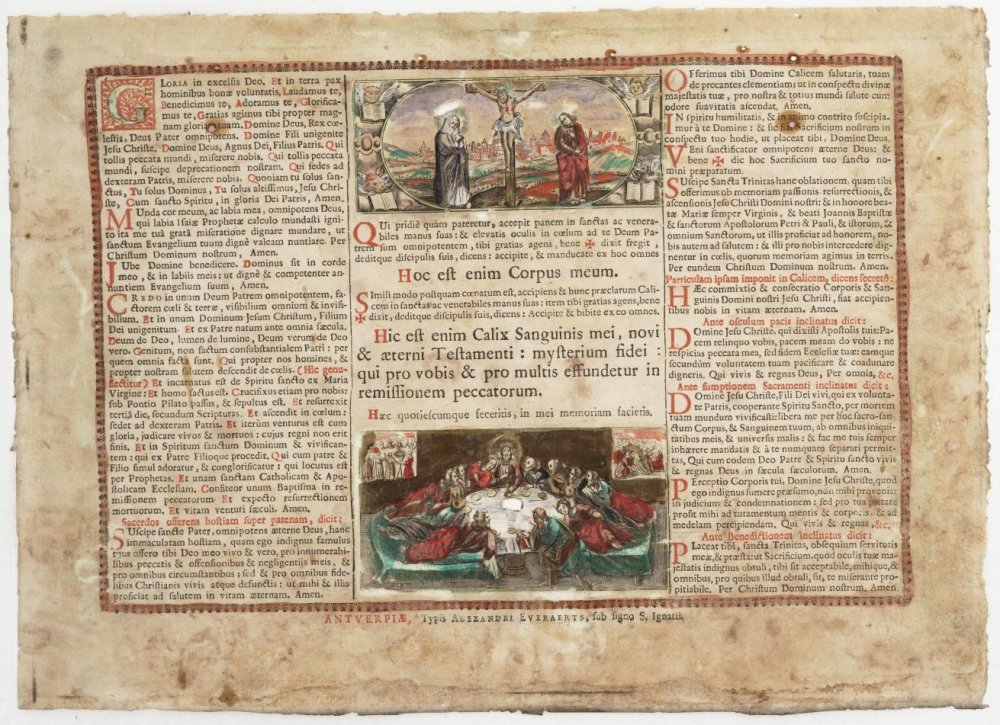 GLORIA in excelsis Deo, Et in terra pax
hominibus bonæ voluntatis, Laudamus te,
Benedicimus te, Adoramus te, Glorifica-
mus te, Gratias agimus tibi propter mag-
nam gloriam tuam. Domine Deus, Rex cœ-
lestis, Deus Pater omnipotens. Domine Fili unigenite
Jesu Christe, Domine Deus, Agnus Dei, Filius Patris. Qui
tollis peccata mundi, miserere nobis. Qui tollis peccata
mundi, suscipe deprecationem nostram. Qui sedes ad
dexteram Patris, miserere nobis. Quoniam tu solus san-
ctus, Tu solus Dominus, Tu solus altissimus, Jesu Chri-
ste, Cum sancto Spiritu, in gloria Dei Patris, Amen.
MUnda cor meum, ac labia mea, omnipotens Deus,
qui labia Isaiæ Prophetæ calculo mundasti igni-
to ita me tuâ gratâ miseratione dignare mundare, ut
sanctum Evangelium tuum dignè valeam nuntiare. Per
Christum Dominum nostrum, Amen.
JUbe Domine benedicere. Dominus sit in corde
meo, & in labiis meis: ut dignè & competenter an-
nuntiem Evangelium suum, Amen.
CREDO in unum Deum Patrem omnipotentem, fa-
ctorem cœli & terræ, visibilium omnium & invisi-
bilium. Et in unum Dominum Jesum Christum, Filium
Dei unigenitum. Et ex Patre natum ante omnia sæcula.
Deum de Deo, lumen de lumine, Deum verum de Deo
vero. Genitum, non factum consubstantialem Patri: per
quem omnia facta sunt. Qui propter nos homines, &
propter nostram salutem descendit de cœlis. (Hic genu-
flectitur) Et incarnatus est de Spiritu sancto ex Maria
Virgine: Et homo factus est. Crucifixus etiam pro nobis:
sub Pontio Pilato passus, & sepultus est. Et resurrexit
tertiâ die, secundum Scripturas. Et ascendit in cœlum:
sedet ad dexteram Patris. Et iterùm venturus est cum
gloria, judicare vivos & mortuos: cujus regni non erit
finis. Et in Spiritum sanctum Dominum & vivifican-
tem: qui ex Patre Filioque procedit. Qui cum patre &
Filio simul adoratur, & conglorificatur: qui locutus est
per Prophetas. Et unam sanctam Catholicam & Apo-
stolicam Ecclesiam. Confiteor unum Baptisma in re-
missionem peccatorum. Et expecto resurrectionem
mortuorum. Et vitam venturi sæculi. Amen.
Sacerdos offerens hostiam super patenam, dicit:
SUscipe sancte Pater, omnipotens æterne Deus, hanc
immaculatam hostiam, quam ego indignus famulus
tuus offero tibi Deo meo vivo & vero, pro innumerabi-
libus peccatis & offensionibus & negligentiis meis, &
pro omnibus circumstantibus: sed & pro omnibus fide-
libus Christianis vivis atque defunctis: ut mihi & illis
proficiat ad salutem in vitam æternam. Amen.
QUi pridiè quàm pateretur, accepit panem in sanctas ac venera-
biles manus suas: & elevatis oculis in cœlum ad te Deum Pa-
trem sum omnipotentem, tibi gratias agens, bene ✠ dixit fregit,
deditque discipulis suis, dicens: accipite, & manducate ex hoc omnes
Hoc est enim Corpus meum.
SImili modo postquam cœnatum est, accipiens & hunc præclarum Cali-
cem in sanctas ac venerabiles manus suas: item tibi gratias agens, bene
✠ dixit, deditque discipulis suis, dicens: Accipite & bibite ex eo omnes.
Hic est enim Calix Sanguinis mei, novi
& æterni Testamenti: mysterium fidei:
qui pro vobis & pro multis effundetur in
remissionem peccatorum.
Hæc quotiescumque feceritis, in mei memoriam facietis.
OFferimus tibi Domine Calicem salutaris, tuam
deprecantes clementiam: ut in conspectu divinæ
majestatis tuæ, pro nostra & totius mundi salute cum
odore suavitatis ascendat, Amen.
IN spiritu humilitatis, & animo contrito suscipia-
mur à te Domine: & sic fiat Sacrificium nostrum in
conspectu tuo hodie, ut placeat tibi, Domine Deus.
VEni sanctificator omnipotens æterne Deus: &
bene ✠ dic hoc Sacrificium tuo sancto no-
mini præparatum.
SUscipe Sancta Trinitas hanc oblationem, quam tibi
offerimus ob memoriam passionis, resurrectionis, &
ascensionis Jesu Christi Domini nostri: & in honore bea-
tæ Mariæ semper Virginis, & beati Joannis Baptistæ
& sanctorum Apostolorum Petri & Pauli, & istorum, &
omnium Sanctorum, ut illis proficiat ad honorem, no-
bis autem ad salutem: & illi pro nobis intercedere dig-
nentur in cœlis, quorum memoriam agimus in terris.
Per eundem Christum Dominum nostrum. Amen.
Particulam ipsam imponit in Calicem, dicens secretò:
HÆc commixtio & consecratio Corporis & San-
guinis Domini nostri Jesu Christi, fiat accipien-
tibus nobis in vitam æternam. Amen.
Ante osculum pacis inclinatus dicit:
DOmine Jesu Christe, qui dixisti Apostolis tuis: Pa-
cem relinquo vobis, pacem meam do vobis: ne
respicias peccata mea, sed fidem Ecclesiæ tuæ: eamque
secundùm voluntatem tuam pacificare & coadunare
digneris. Qui vivis & regnas Deus, Per omnia, &c.
Ante sumptionem Sacramenti inclinatus dicit:
DOmine Jesu Christe, Fili Dei vivi, qui ex volunta-
te Patris, cooperante Spiritu Sancto, per mortem
tuam mundum vivificasti: libera me per hoc sacro-san-
ctum Corpus, & Sanguinem tuum, ab omnibus iniqui-
tatibus meis, & universis malis: & fac me tuis semper
inhærere mandatis & à te nunquam separari permit-
tas, Qui cum eodem Deo Patre & Spiritu sancto vivis
& regnas Deus in sæcula sæculorum, Amen.
PErceptio Corporis tui, Domine Jesu Christe, quod
ego indignus sumere præsumo, non mihi proveniat
in judicium & condemnationem: sed pro tua pietate
prosit mihi ad tutamentum mentis & corporis, & ad
medelam percipiendam, Qui vivis & regnas, &c.
Ante Benedictionem inclinatus dicit:
PLaceat tibi, sancta Trinitas, obsequium servitutis
meæ, & præsta: ut Sacrificium, quod oculis tuæ ma-
jestatis indignus obtuli, tibi sit acceptabile, mihique, &
omnibus, pro quibus illud obtuli, sit, te miserante pro-
pitiabile. Per Christum Dominum nostrum, Amen
ANTVERPIÆ, Typis ALEXANDRI EVERAERTS, sub signo S. Ignatii,